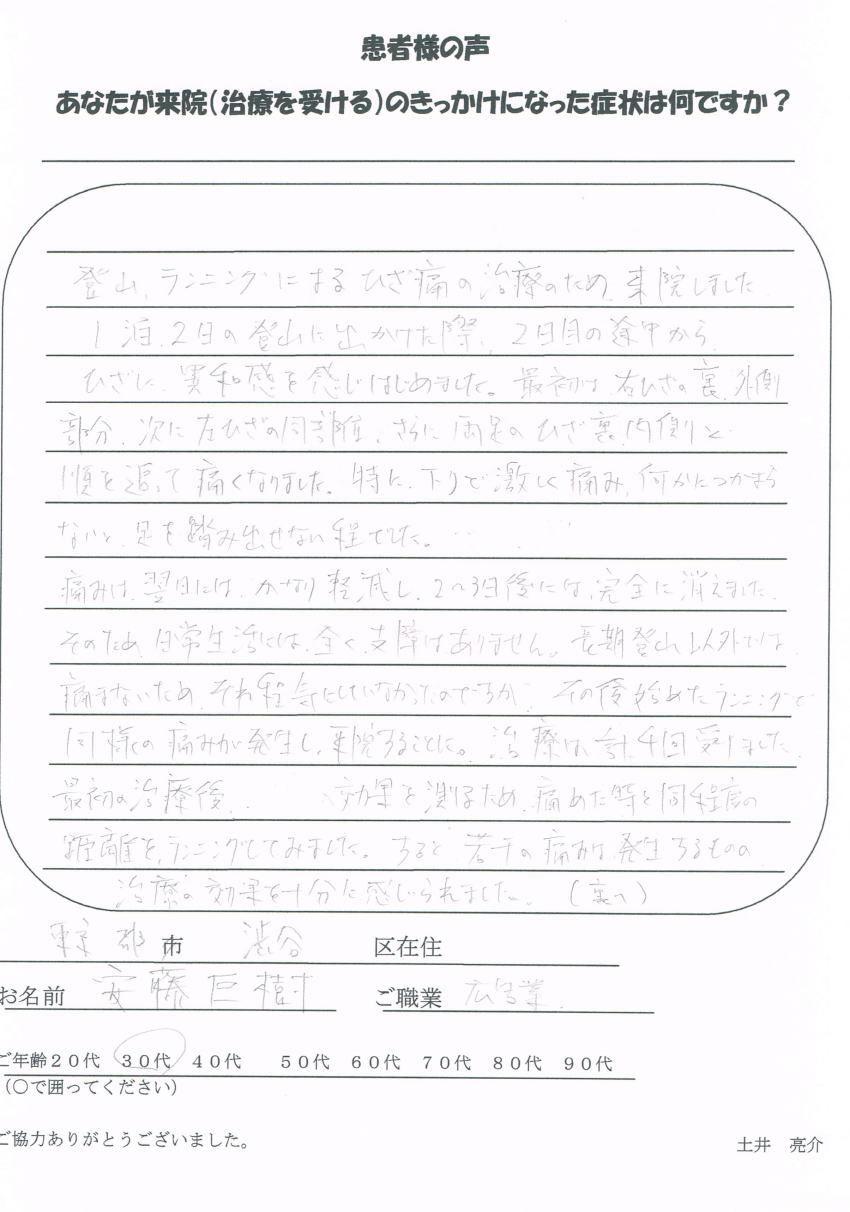 患者様の声
あなたが来院(治療を受ける)のきっかけになった症状は何ですか?
登山、ランニングによるひざ痛の治療のため、来院しました
1泊、2日の登山に出かけた際、2日目の途中から、
ひざに、異和感を感じはじめました。最初は、右ひざの裏、外側
部分、次に左ひざの同部位、さらに両足のひざ裏、内側と
順を追って痛くなりました。特に、下りで激しく痛み、何かにつかまら
ないと、足を踏み出せない程でした。
痛みは、翌日には、かなり軽減し、2〜3日後には、完全に消えました。
そのため、日常生活には、全く、支障はありません。長期登山以外では
痛まないため、それ程気にしていなかったのですが、その後始めたランニングで
同様の痛みが発生し、来院することに。治療は、計4回受けました。
最初の治療後、効果を測るため、痛めた時と同程度の
距離を、ランニングしてみました。すると、若干の痛みは、発生するものの
治療の効果を十分に感じられました。(裏へ)
東京都市 渋谷 区在住
お名前 安藤巨樹 ご職業 広告業
ご年齢20代 30代 40代 50代 60代 70代 80代 90代
(○で囲ってください)
ご協力ありがとうございました。
土井 亮介